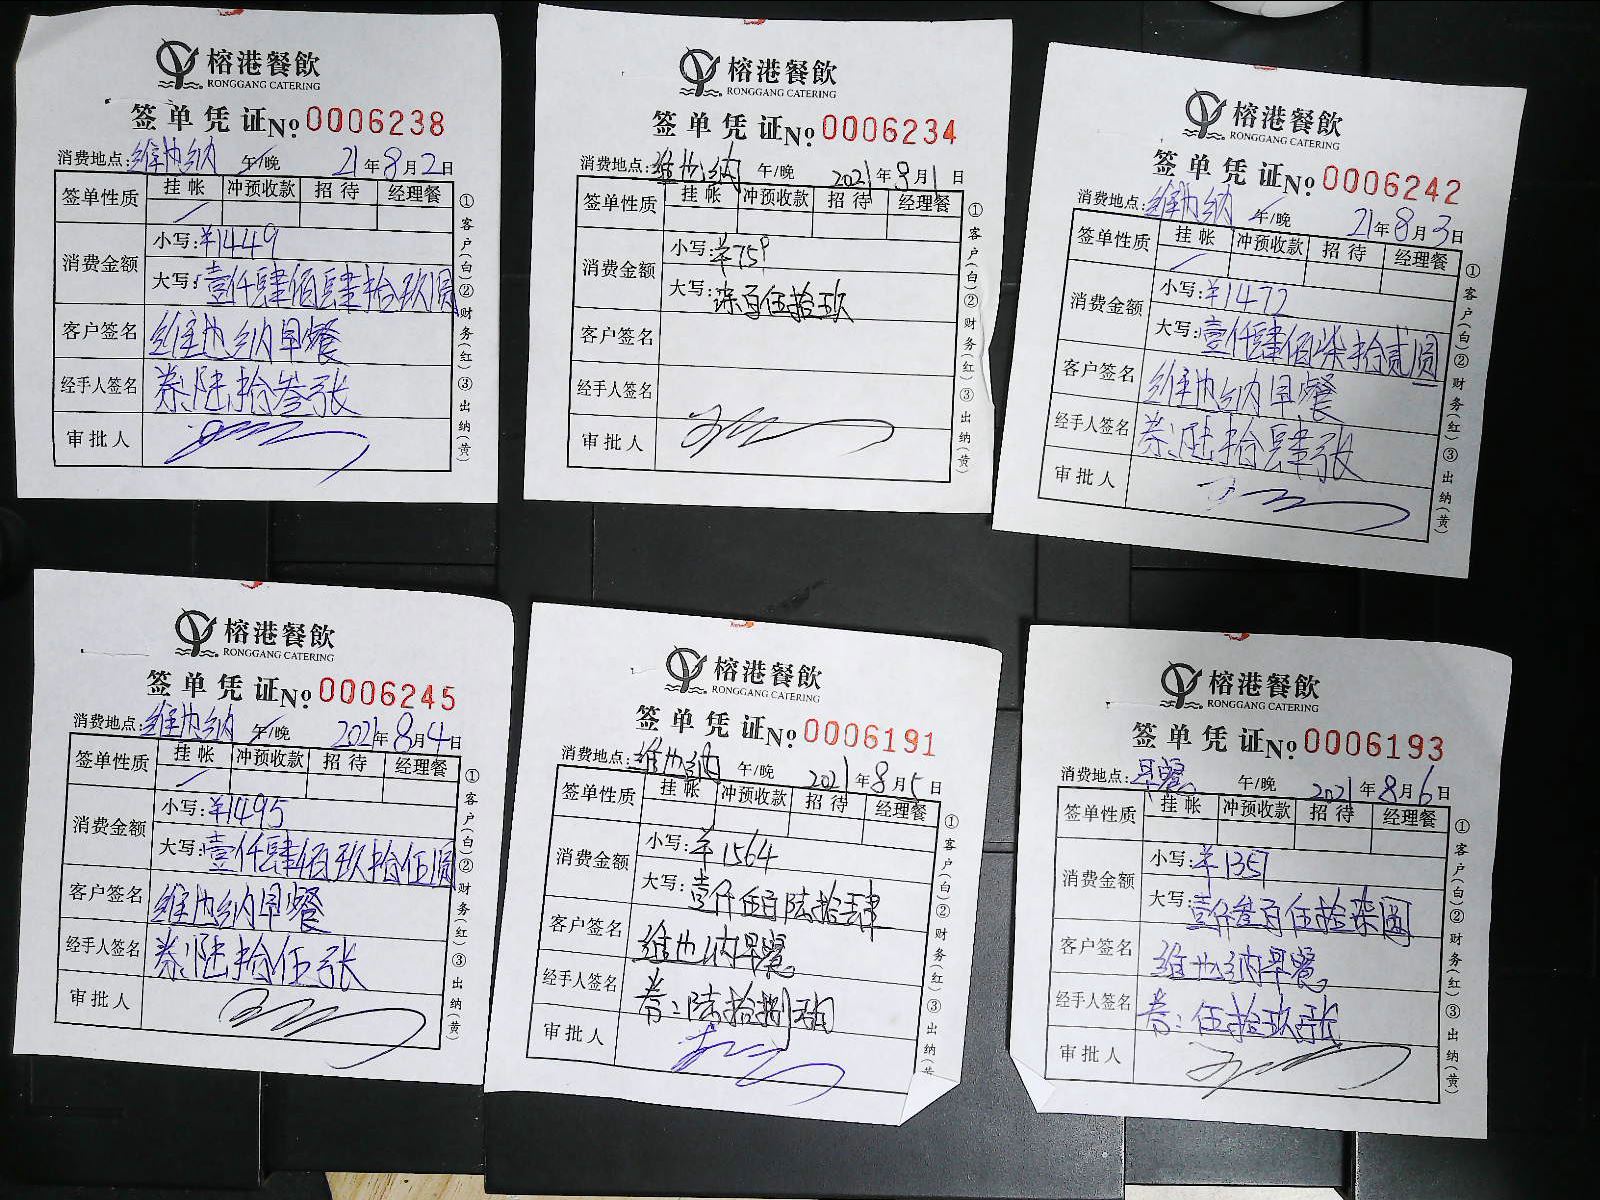 榕港餐飲
RONGGANG CATERING
签单凭证 No 0006238
消费地点:维也纳 午/晚 21年8月2日
签单性质 挂帐 冲预收款 招待 经理餐
消费金额 小写:¥1449
大写:壹仟肆佰肆拾玖圆
客户签名 维也纳早餐
经手人签名 券:陆拾叁张
审批人
①客户(白)②财务(红)③出纳(黄)
榕港餐飲
RONGGANG CATERING
签单凭证 No 0006234
消费地点:维也纳 午/晚 2021年8月1日
签单性质 挂帐 冲预收款 招待 经理餐
消费金额 小写:¥759
大写:柒百伍拾玖
客户签名
经手人签名
审批人
①客户(白)②财务(红)③出纳(黄)
榕港餐飲
RONGGANG CATERING
签单凭证 No 0006242
消费地点:维也纳 午/晚 21年8月3日
签单性质 挂帐 冲预收款 招待 经理餐
消费金额 小写:¥1472
大写:壹仟肆佰柒拾贰圆
客户签名 维也纳早餐
经手人签名 券:陆拾肆张
审批人
①客户(白)②财务(红)③出纳(黄)
榕港餐飲
RONGGANG CATERING
签单凭证 No 0006245
消费地点:维也纳 午/晚 2021年8月4日
签单性质 挂帐 冲预收款 招待 经理餐
消费金额 小写:¥1495
大写:壹仟肆佰玖拾伍圆
客户签名 维也纳早餐
经手人签名 券:陆拾伍张
审批人
①客户(白)②财务(红)③出纳(黄)
榕港餐飲
RONGGANG CATERING
签单凭证 No 0006191
消费地点:维也纳 午/晚 2021年8月5日
签单性质 挂帐 冲预收款 招待 经理餐
消费金额 小写:¥1564
大写:壹仟伍百陆拾肆
客户签名 维也纳早餐
经手人签名 券:陆拾捌张
审批人
①客户(白)②财务(红)③出纳(黄
榕港餐飲
RONGGANG CATERING
签单凭证 No 0006193
消费地点:早餐 午/晚 2021年8月6日
签单性质 挂帐 冲预收款 招待 经理餐
消费金额 小写:¥1357
大写:壹仟叁百伍拾柒圆
客户签名 维也纳早餐
经手人签名 券:伍拾玖张
审批人
①客户(白)②财务(红)③出纳(黄)